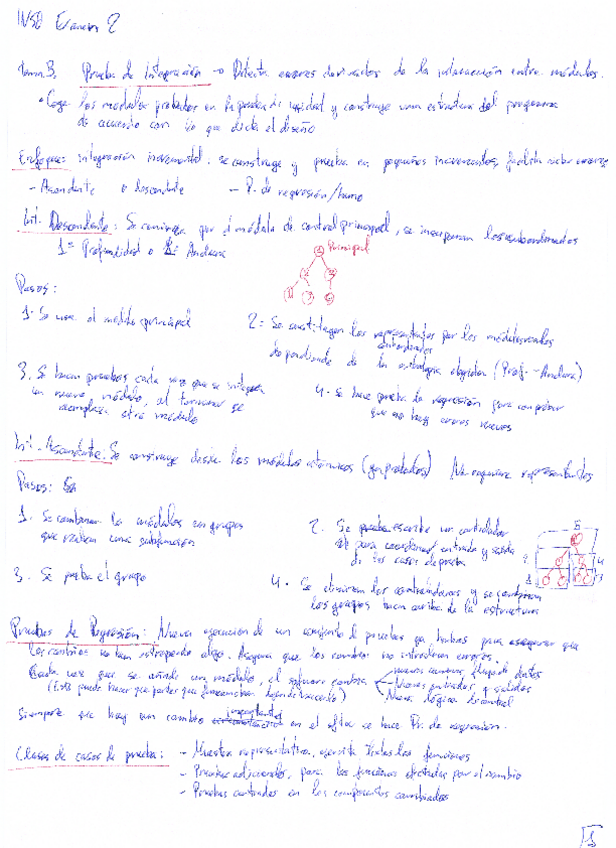 INSO Examen 2
Tema 3. Prueba de Integración -> Detecta errores derivados de la interacción entre módulos.
• Coge los módulos probados en la prueba de unidad y construye una estructura del programa
de acuerdo con lo que dicta el diseño
Enfoque: integración incremental. se construye y prueba en pequeños incrementos, facilita aislar errores
- Ascendente o descendente - P. de regresión/humo
Int. Descendente: Se comienza por el módulo de control principal, se incorporan los subordinados
1º Profundidad o 1º: Anchura
Principal
Pasos:
1. Se usa el módulo principal
2: Se sustituyen los representantes por los módulos reales
subordinados
dependiendo de la estrategia elegida (Prof.-Anchura)
3. Se hacen pruebas cada vez que se integra
un nuevo módulo, al terminar se
reemplaza otro módulo
4.- Se hace prueba de regresión para comprobar
que no hay errores nuevos
Int.-Ascendente: Se construye desde los módulos atómicos (ya probados) No requiere representantes
Pasos:
1. Se combinan los módulos en grupos
que realicen una subfunción
2. Se escribe un controlador
para coordinar entrada y salida
de los casos de prueba
3. Se prueba el grupo
4. Se eliminan los controladores y se combinan
los grupos hacia arriba de la estructura
Pruebas de Regresión: Nueva ejecución de un conjunto de pruebas ya hechas para asegurar que
los cambios no han estropeado algo. Asegura que los cambios no introducen errores.
Cada vez que se añade un módulo, el software cambia
nuevos caminos, flujo de datos
Nuevas entradas y salidas
Nueva lógica de control
(Esto puede hacer que partes que funcionaban dejen de hacerlo)
Siempre que hay un cambio importante en el sftw se hace Pr. de regresión.
Clases de casos de prueba: - Muestra representativa, ejercita todas las funciones
- Pruebas adicionales, para las funciones afectadas por el cambio
- Pruebas centradas en los componentes cambiados
1